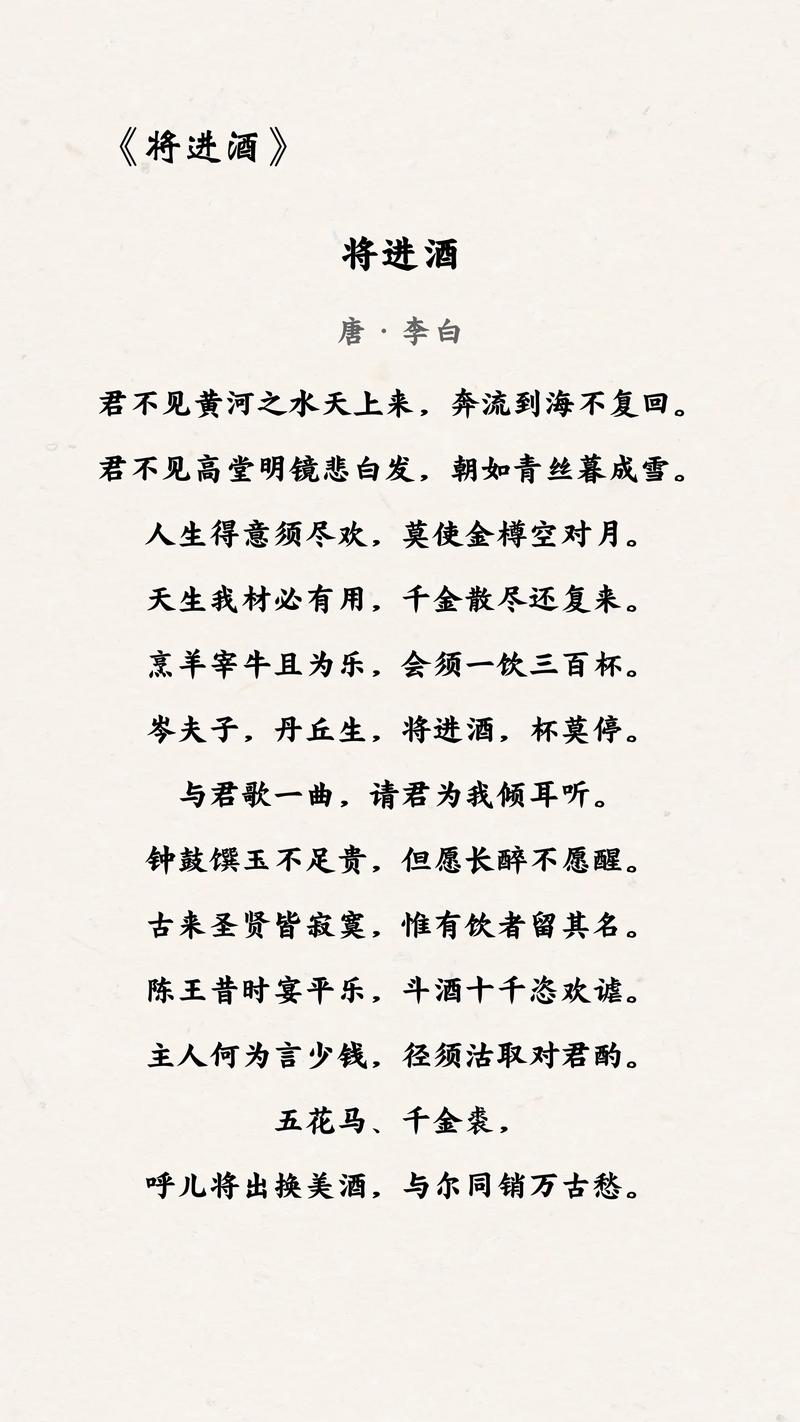 《将进酒》
将进酒
唐·李白
君不见黄河之水天上来，奔流到海不复回。
君不见高堂明镜悲白发，朝如青丝暮成雪。
人生得意须尽欢，莫使金樽空对月。
天生我材必有用，千金散尽还复来。
烹羊宰牛且为乐，会须一饮三百杯。
岑夫子，丹丘生，将进酒，杯莫停。
与君歌一曲，请君为我倾耳听。
钟鼓馔玉不足贵，但愿长醉不愿醒。
古来圣贤皆寂寞，惟有饮者留其名。
陈王昔时宴平乐，斗酒十千恣欢谑。
主人何为言少钱，径须沽取对君酌。
五花马、千金裘，
呼儿将出换美酒，与尔同销万古愁。